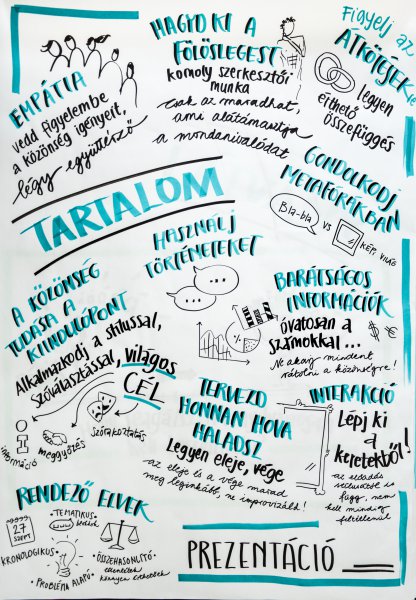 EMPÁTIA
vedd figyelembe
a közönség igényeit,
légy együttérző
HAGYD KI A
FÖLÖSLEGEST
komoly szerkesztői
munka
csak az maradhat,
ami alátámasztja
a mondanivalódat
Figyelj az
ÁTKÖTÉSEKre
legyen
érthető
összefüggés
TARTALOM
GONDOLKODJ
METAFORÁKBAN
Bla-bla
VS
KÉP, VILÁG
HASZNÁLJ
TÖRTÉNETEKET
A KÖZÖNSÉG
TUDÁSA A
KIINDULÓPONT
Alkalmazkodj a stílussal,
szóválasztással, világos
CÉL
információ
meggyőzés
szórakoztatás
BARÁTSÁGOS
INFORMÁCIÓK
óvatosan a
számokkal...
$ €
Ne akarj mindent
rátolni a közönségre!
TERVEZD
HONNAN HOVA
HALADSZ
Legyen eleje, vége
-az eleje és a vége marad
meg leginkább, ne improvizálj!
INTERAKCIÓ
Lépj ki
a
keretekből!
-az előadás
függ, nem
kell mindig
feltétlenül
RENDEZŐ ELVEK
27
SZEPT
KRONOLOGIKUS
•TEMATIKUS
PROBLÉMA ALAPÚ
•ÖSSZEHASONLÍTÓ
ellentétek
könnyen érthetőek
PREZENTÁCIÓ